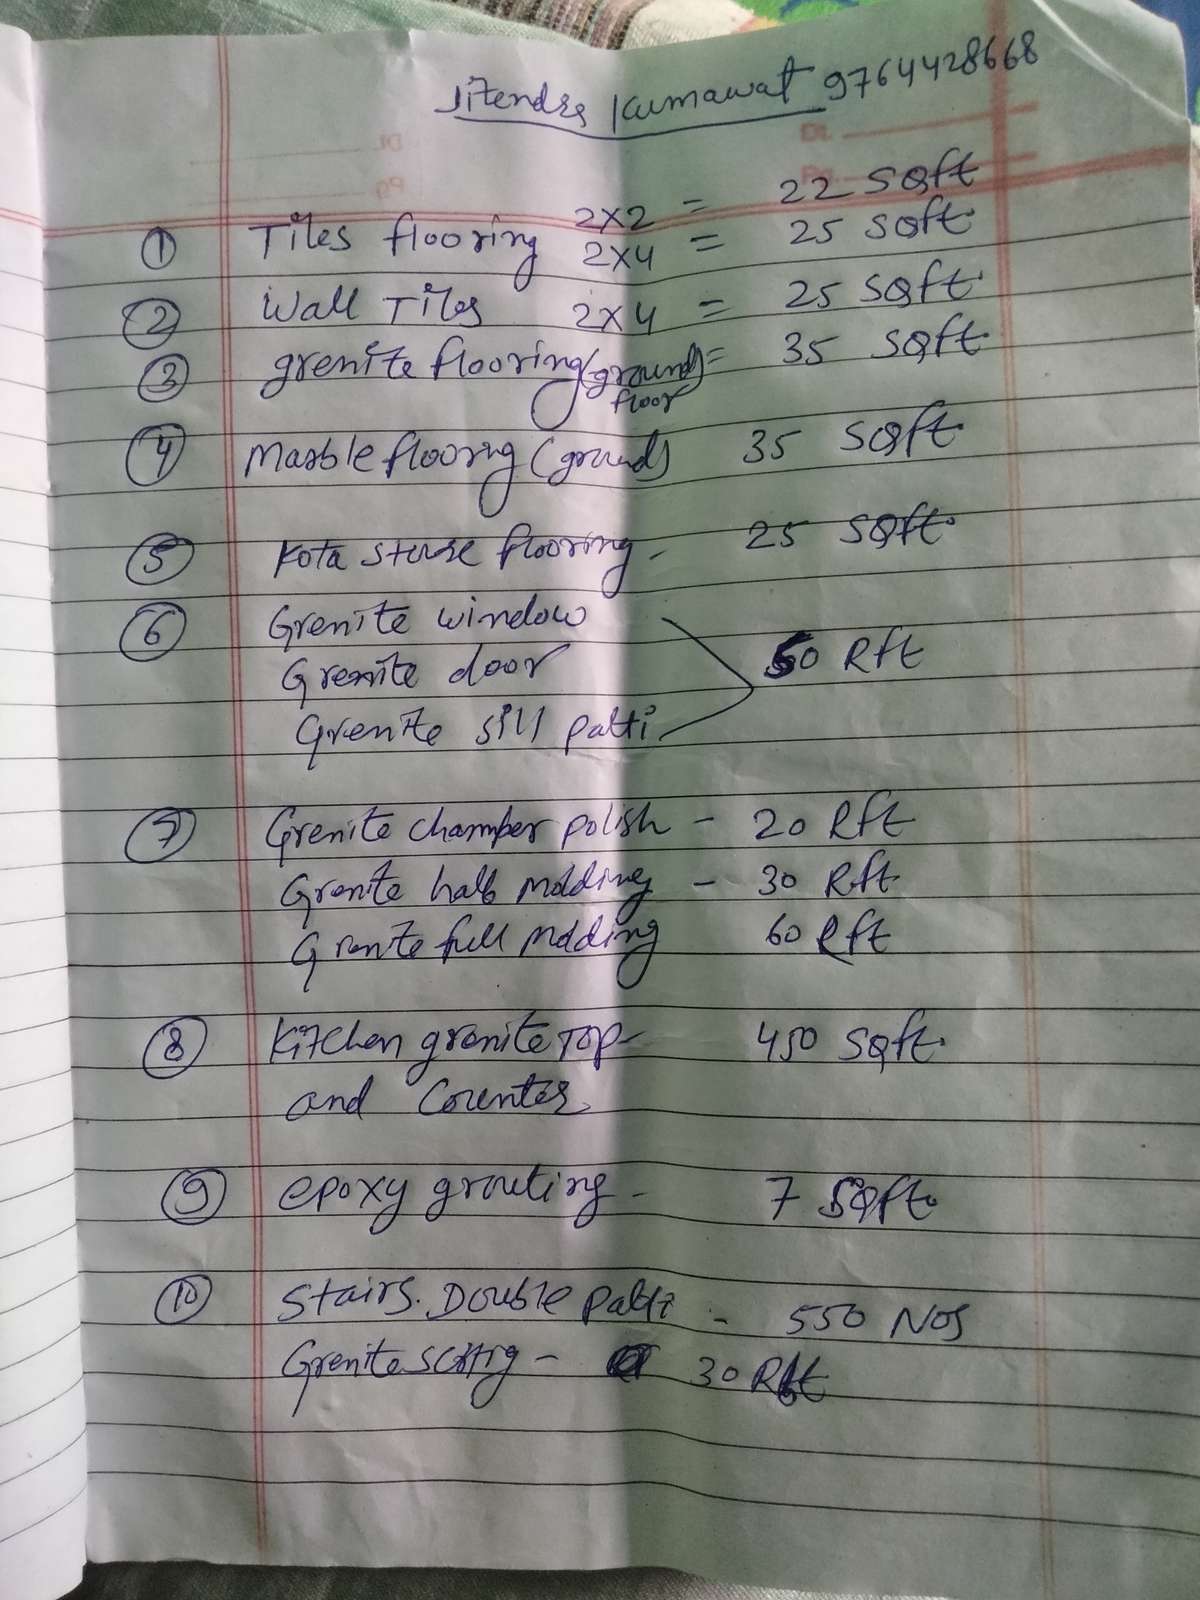 Jitendra Kumawat 9764428668
① Tiles flooring 2x2 = 22 SQft
2x4 = 25 SQft.
② Wall Tiles 2x4 = 25 SQft.
③ grenite flooring (ground floor) = 35 SQft
④ Marble flooring (ground) 35 SQft.
⑤ Kota stone flooring - 25 SQft.
⑥ Grenite window
Grenite door 50 Rft
Grenite sill patti
⑦ Grenite chamber polish - 20 Rft
Grenite half molding - 30 Rft.
Grenite full molding 60 Rft
⑧ Kitchen grenite Top - 450 SQft.
and Counter
⑨ epoxy grouting - 7 SQft.
⑩ Stairs. Double patti - 550 Nos
Grenite - 30 Rft